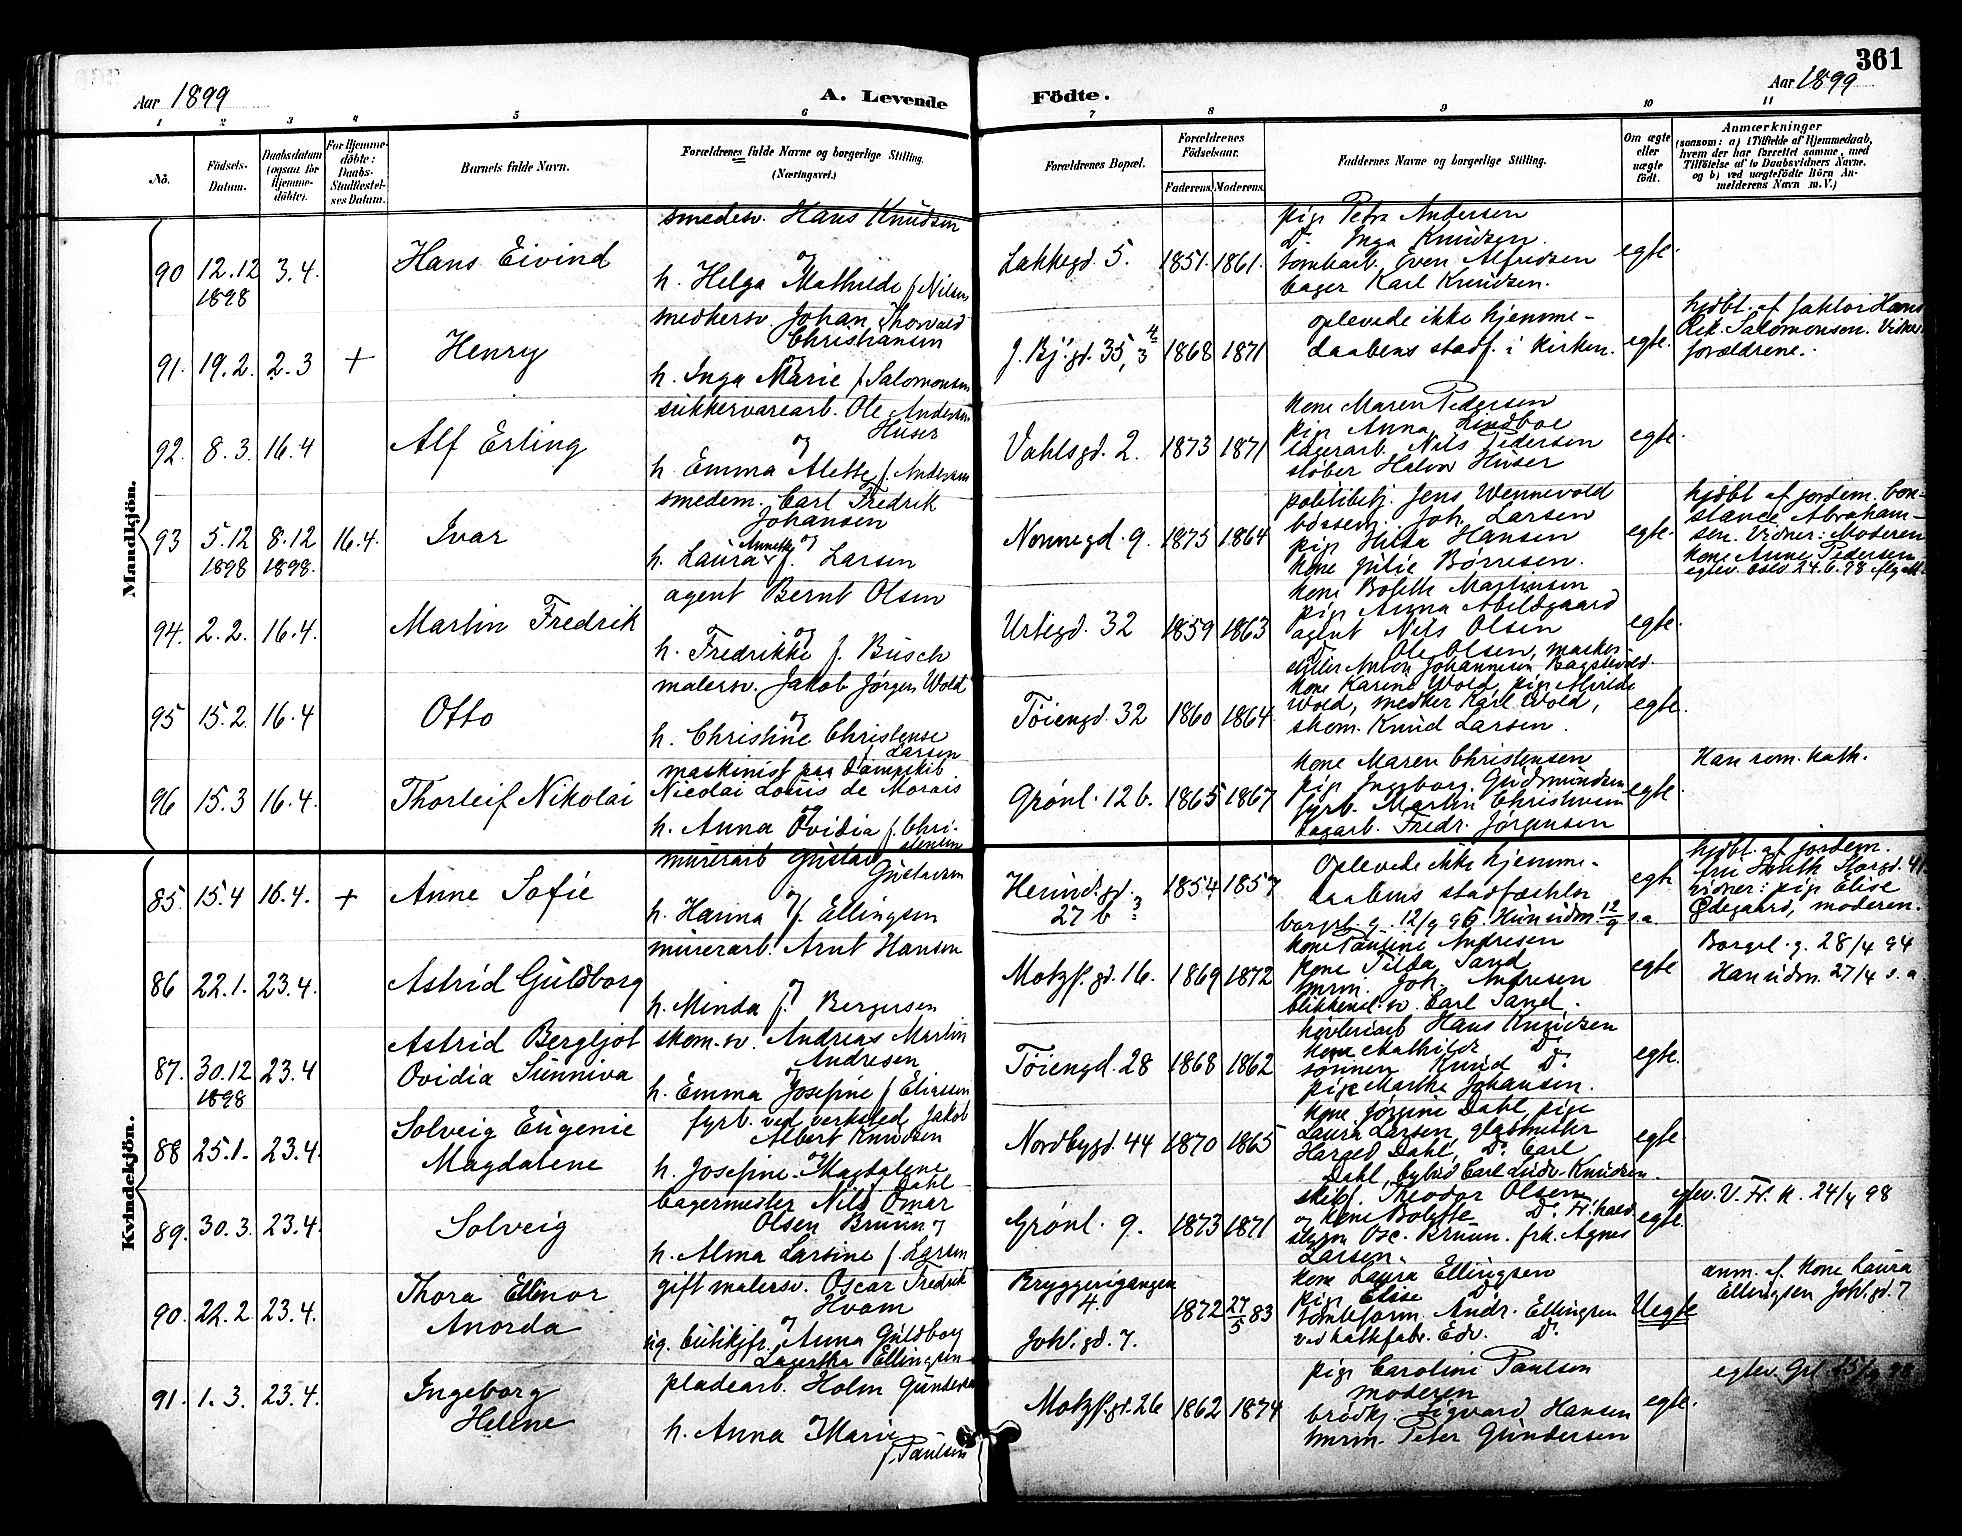 361
Aar 1899
A. Levende Födte.
Aar 1899
1 2 3 4 5 6 7 8 9 10 11
No.
Födsels-
Datum.
Daabsdatum
(ogsaa for
Hjemme-
döbte).
For Hjemme-
döbte:
Daabs-
Stadfæstel-
ses Datum.
Barnets fulde Navn.
Forældrenes fulde Navne og borgerlige Stilling.
(Næringsvei.)
Forældrenes Bopæl.
Forældrenes
Födselsaar.
Faderens. Moderens.
Faddernes Navne og borgerlige Stilling.
Om ægte
eller
uægte
födt.
Anmærkninger
(saasom: a) i Tilfælde af Hjemmedaab,
hvem der har forrettet samme, med
Tilföielse af to Daabsvidners Navne,
og b) ved uægtefödte Börn An-
melderens Navn m. V.)
Mandkjön.
90 12.12 1898 3.4. Hans Eivind
smedesv. Hans Knudsen
og
h. Helga Mathilde f. Nilsen
Lakkegd. 5. 1851. 1861.
pige Petra Andersen
Do. Inga Knudsen.
tombarb. Even Alfredsen
bager Karl Knudsen.
egte.
91. 19.2. 2.3 + Henry
snedkersv. Johan Thorvald
Christiansen
og
h. Inga Marie f. Salomonsen
J. Bj. gd. 35, 4/3 1868 1871
oplevede ikke hjemme-
daabens stadf. i kirken.
egte.
hjdbt. af faktor Hans
Rek. Salomonsen. Vidner:
forældrene.
92. 8.3. 16.4 Alf Erling
sukkervarearb. Ole Andersen
Huser
og
h. Emma Alette f. Andersen
Vahlsgd. 2. 1873 1871
kone Maren Pedersen
pige Anna Lindboe
lagerarb. Nils Pedersen
støber Halvor Huser
egte.
93 5.12 1898 8.12 1898. 16.4. Ivar
smedem. Carl Fredrik
Johansen
og
h. Laura Annette f. Larsen
Nonnegd. 9. 1875 1864
politibetj. Jens Wennevold
bøssem. Joh. Larsen
pige Hulda Hansen
kone Julie Børresen.
egte.
hjdbt af jordem. Con-
stance Abraham-
sen. Vidner: Moderen
kone Anne Pedersen
egtev. Oslo 24.6.98
94. 2.2. 16.4. Martin Fredrik
agent Bernt Olsen
og
h. Fredrikke f. Busch
Urtegd. 32 1859 1863
kone Bolette Martinsen
pige Anna Abildgaard
agent Nils Olsen
Do. Ole Olsen, maskin-
Anton Johannesen
egte.
95 15.2. 16.4 Otto
malersv. Jakob Jørgen Wold
og
h. Christine Christense
f. Larsen
Tøiengd. 32 1860 1864
kone Karine Wold, pige
Wold, snedker Karl Wold,
skom. Knud Larsen.
egte.
96 15.3 16.4. Thorleif Nikolai
maskinist paa dampskib
Nicolai Louis de Morais
og
h. Anna Ovidia f. Chri-
stensen
Grønl. 12 b. 1865 1867
kone Maren Christensen
pige Ingeborg Gudmundsen
fyrb. Martin Christensen
bagarb. Fredr. Jørgensen
egte.
Han rom. kath.
Kvindekjön.
85. 15.4 16.4. + Anne Sofie
murerarb Gustav
Gustavsen
og
h. Hanna f. Ellingsen
27 b 1854 1857
Oplevede ikke hjemme-
daabens stadfæstelse
borgerl. g. 12/9 96. Hun udm. 12/9 s.a.
egte
hjdbt. af jordem.
fru Storgd. 41
vidner: pige Elise
Ødegaard, moderen.
86 22.1. 23.4. Astrid Guldborg
murerarb. Arnt Hansen
og
h. Minda f. Bergersen
Motzf. gd. 16. 1869 1872
kone Pauline Andresen
kone Tilda Sand
tmrm. Joh. Andresen
blikkensl. sv. Carl Sand.
egte
Borgel. g. 28/4 94
Han udm. 27/4 s.a.
87. 30.12 1898 23.4 Astrid Bergljot
Ovidia Sunniva
skom. sv. Andreas Martin
Andresen
og
h. Emma Josefine f. Eliassen
Tøiengd. 28 1868 1862
høvleriarb Hans Knudsen
kone Mathilde Do.
sønnen Knud Do.
pige Martha Johansen.
egte.
88 25.1. 23.4. Solveig Eugenie
Magdalene
fyrb. ved verksted Jakob
Albert Knudsen
og
h. Josefine Magdalene
f. Dahl
Nordbygd. 44 1870 1865
kone Jørgine Dahl, pige
Laura Larsen, glasmester
Harald Dahl, Do. Carl
Dahl, bybud Carl Ludv. Knudsen.
egte.
89. 30.3. 23.4. Solveig
bagermester Nils Omar
Olsen Bruun og
h. Alma Larsine f. Larsen
Grønl. 9. 1873 1871
Theodor Olsen
og kone Bolette Do.
Osc. Bruun. frk. Agnes
Larsen.
egte.
egtev. V. Fr. k. 24/4 98
90. 22.2. 23.4. Thora Ellinor
Anorda
gift malersv. Oscar Fredrik
Hvam
og
ug. butikjfr. Anna Guldborg
Lagertha Ellingsen
Bryggerigangen
4
Joh. gd. 7. 1872 27/5 83
kone Laura Ellingsen
pige Elise Do.
tomteform. Andr. Ellingsen
Edv. Do.
Uegte
anm. af kone Laura
Ellingsen Joh. gd. 7
91. 1.3. 23.4. Ingeborg
Helene
pladearb. Holm Gundersen
h. Anna Marie
f. Paulsen
Motzf. gd. 26 1862 1874
pige Caroline Paulsen
moderen
brødkj. Sigvard Hansen
tmrm. Peter Gundersen
egte.
egtev. Grl.